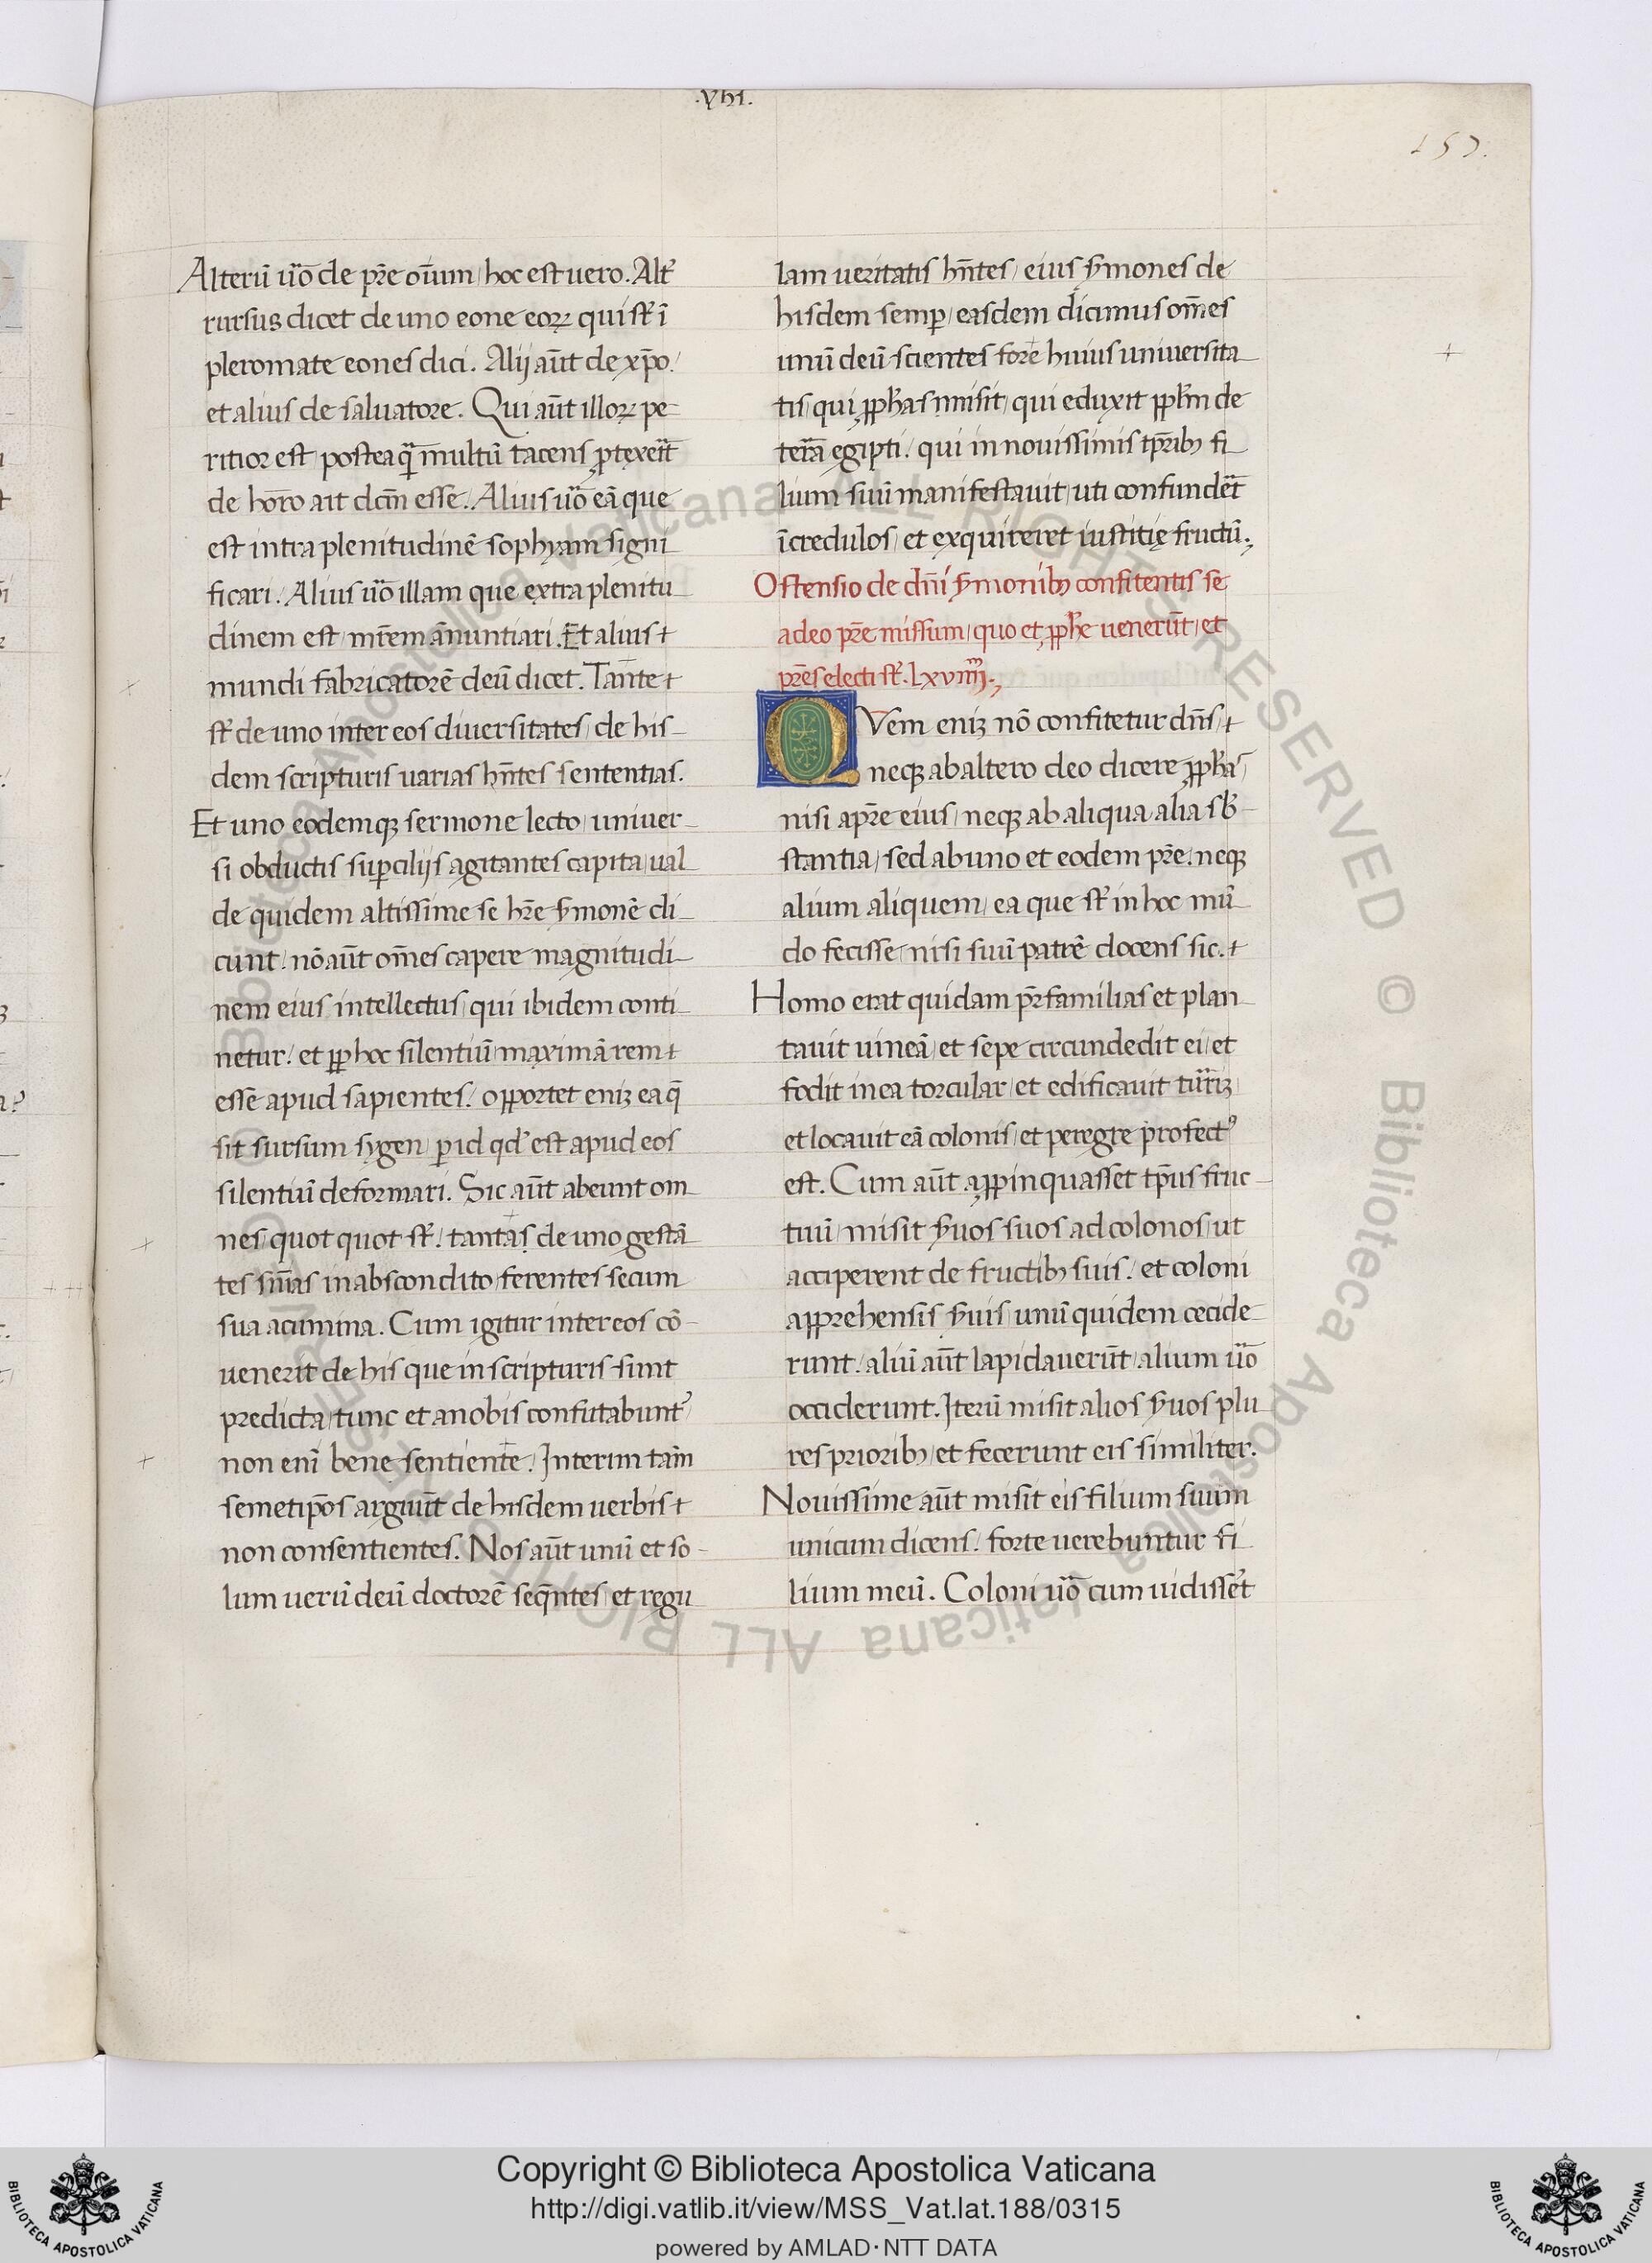 .VIII.
157.
Alterū ūo de pr̄e om̄um hoc est uero. Alt̄
rursus dicet de uno eone eorꝝ qui sf̄ ī
pleromate eones dici. Alij aūt de xp̄o.
et alius de saluatore. Qui aūt illorꝝ pe
ritior est posteaq̄ multū tacens ꝓtexerit
de horo ait dcm̄ esse. Alius ūo eā que
est intra plenitudinē sophyam signi
ficari. Alius ūo illam que extra plenitu
dinem est mr̄em ānuntiari. Et alius
mundi fabricatorē deū dicet. Tante
sf̄ de uno inter eos diuersitates de his
dem scripturis uarias hn̄tes sententias.
Et uno eodemqꝫ sermone lecto uniuer
si obductis suꝑcilijs agitantes capita ual
de quidem altissime se hr̄e ſ̄monē di
cunt. nō aūt om̄es capere magnitudi
nem eius intellectus qui ibidem conti
netur. et ꝓp hoc silentiū maximā rem
esse apud sapientes. opportet enіꝫ ea q̄
sit sursum sygen ꝑ id qd̄ est apud eos
silentiū deformari. Sic aūt abeunt om
nes quot quot sf̄. tantas de uno gestā
tes sn̄ias in abscondito ferentes secum
sua acumina. Cum igitur inter eos cō
uenerit de his que in scripturis sunt
predicta tunc et a nobis confutabunt̄
non enī bene sentiente. Interim tam̄
semetip̄os arguūt de hisdem uerbis
non consentientes. Nos aūt unū et so
lum uerū deū doctorē seq̄ntes et regu
lam ueritatis hn̄tes eius ſ̄mones de
hisdem semꝑ easdem dicimus om̄es
unū deū scientes fore huius uniuersita
tis qui ꝓphas misit qui eduxit ppl̄m de
terā egipti. qui in nouissimis tp̄ribꝫ fi
lium suū manifestauit uti confunderet
īcredulos et exquireret iustitię fructū.
Ostensio de dn̄i ſ̄monibꝫ confitentis se
a deo pr̄e missum quo et ꝓphe uenerūt et
pr̄es electi sf̄. LXVIIII.
QVem enіꝫ nō confitetur dn̄s
neqꝫ ab altero deo dicere ꝓphas
nisi a pr̄e eius neqꝫ ab aliqua alia sb̄
stantia sed ab uno et eodem pr̄e. neqꝫ
alium aliquem ea que sf̄ in hoc mū
do fecisse nisi suū patrē docens sic.
Homo erat quidam pr̄familias et plan
tauit uineā et sepe circundedit ei et
fodit in ea torcular et edificauit turrіꝫ
et locauit eā colonis et peregre profectꝰ
est. Cum aūt appinquasset tp̄us fruc
tuū misit ſ̄uos suos ad colonos ut
acciperent de fructibꝫ suis. et coloni
apprehensis ſ̄uis unū quidem cecide
runt. aliū aūt lapidauerūt alium ūo
occiderunt. Iterū misit alios ſ̄uos plu
res prioribꝫ et fecerunt eis similiter.
Nouissime aūt misit eis filium suum
unicum dicens. forte uerebuntur fi
lium meū. Coloni ūo cum uidisset
© Biblioteca Apostolica Vaticana ALL RIGHTS RESERVED © Biblioteca Apostolica Vaticana ALL RIGHTS RESERVED
Copyright © Biblioteca Apostolica Vaticana
http://digi.vatlib.it/view/MSS_Vat.lat.188/0315
powered by AMLAD·NTT DATA
BIBLIOTECA APOSTOLICA VATICANA
BIBLIOTECA APOSTOLICA VATICANA